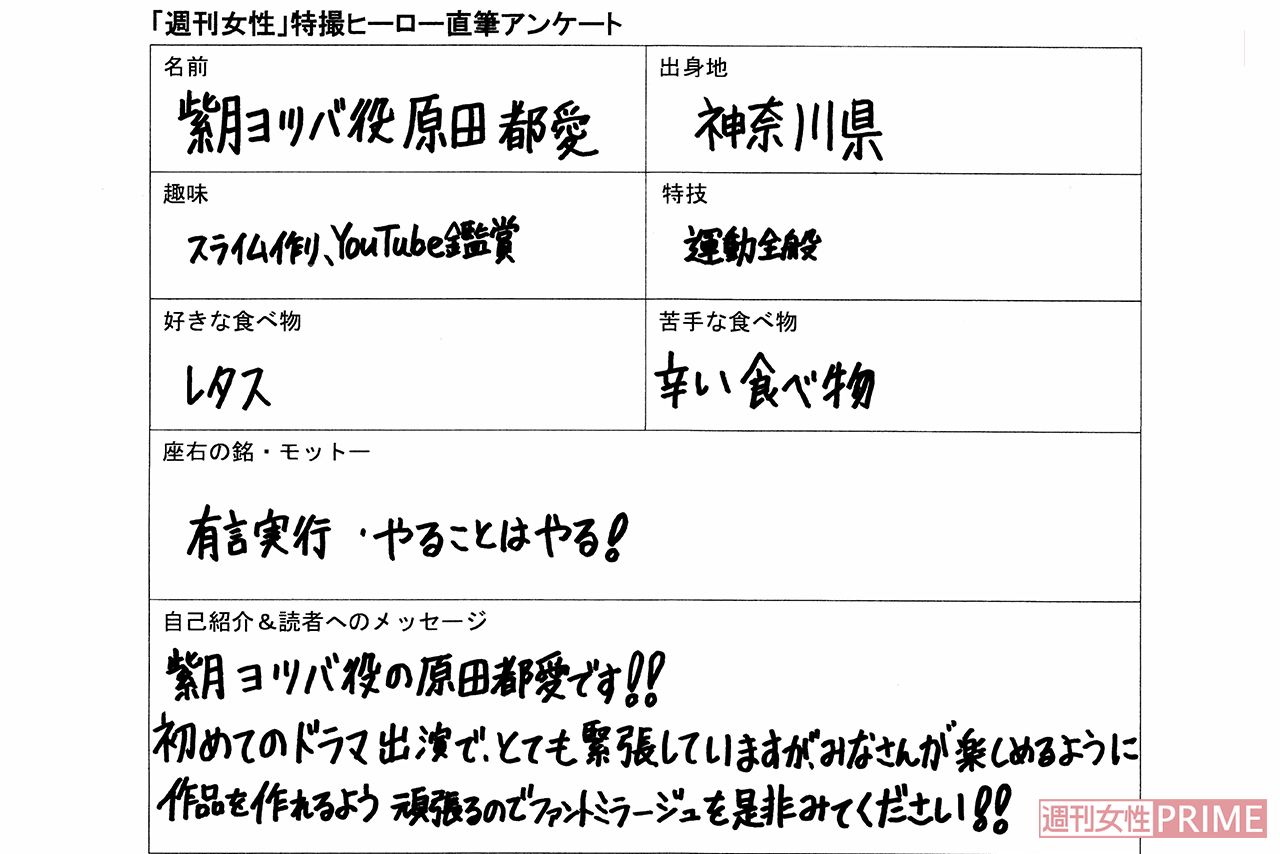 「週刊女性」特撮ヒーロー直筆アンケート
名前
紫月ヨツバ役 原田都愛
出身地
神奈川県
趣味
スライム作り、YouTube鑑賞
特技
運動全般
好きな食べ物
レタス
苦手な食べ物
辛い食べ物
座右の銘・モットー
有言実行・やることはやる!
自己紹介&読者へのメッセージ
紫月ヨツバ役の原田都愛です!!
初めてのドラマ出演で、とても緊張していますが、みなさんが楽しめるように
作品を作れるよう頑張るのでファントミラージュを是非みてください!!
週刊女性PRIME